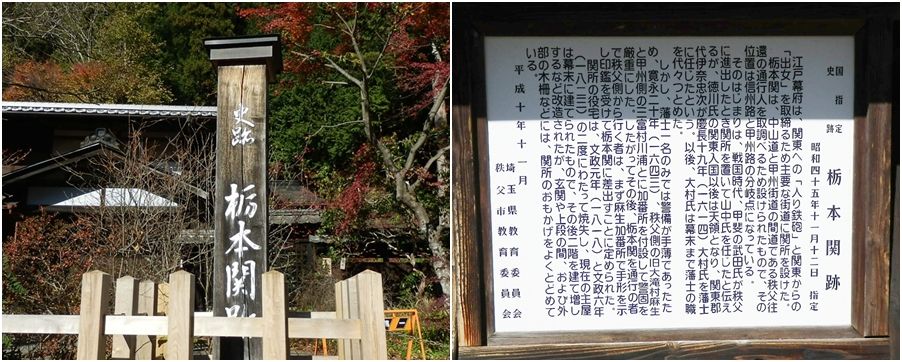 史跡
栃本関跡
国指定
史跡
栃本関跡
昭和四十五年十一月十二日 指定
江戸幕府は、関東への「入り鉄砲」と関東からの
「出女」を取締るため主要な街道に関所を設けた。
栃本関は、中山道と甲州街道の間道である秩父往
還の通行人を取調べるため設けられたもので、その
位置は信州路と甲州路の分岐点になっている。
そのはじまりは、戦国時代、甲斐の武田氏が秩父
に進出したとき関所を置いて山中氏を任じたと伝え
るが、徳川氏の関東入国以後は天領となり、関東郡
代伊奈忠次が慶長十九年（一六一四）大村氏を藩士
に任じたという。以後、大村氏は幕末まで藩士の職
を代々つとめた。
しかし、藩士一名のみでは警備が手薄であったた
め、寛永二十年（一六四三）、秩父側の旧大滝村麻生
と甲州側の三富村川浦とに加番所を付設して警固を
厳重にした。したがってその後、栃本関を通行の者
で秩父側から行く者は、まず麻生加番所で手形を示
し印鑑を受けて栃本関に差出すことに定められた。
関所の役宅は、文政元年（一八一八）と文政六年
（一八二三）の二度にわたって焼失し、現在の主屋
は幕末に建てられたもので、その後二階を建て増し
するなど改造されたが、玄関や上段の間、および外
部の木柵などには、関所のおもかげをよくとどめて
いる。
平成十年十一月
埼玉県教育委員会
秩父市教育委員会